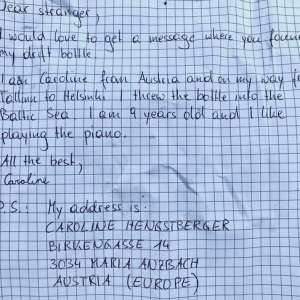 Dear stranger,
I would love to get a message where you found
my drift bottle.
I am Caroline from Austria and on my way fr
Tallinn to Helsinki I threw the bottle into the
Baltic Sea. I am 9 years old and I like
playing the piano.
All the best,
Caroline
P.S.: My address is:
CAROLINE HENGSTBERGER
BIRKENGASSE 14
3034 MARIA ANZBACH
AUSTRIA (EUROPE)